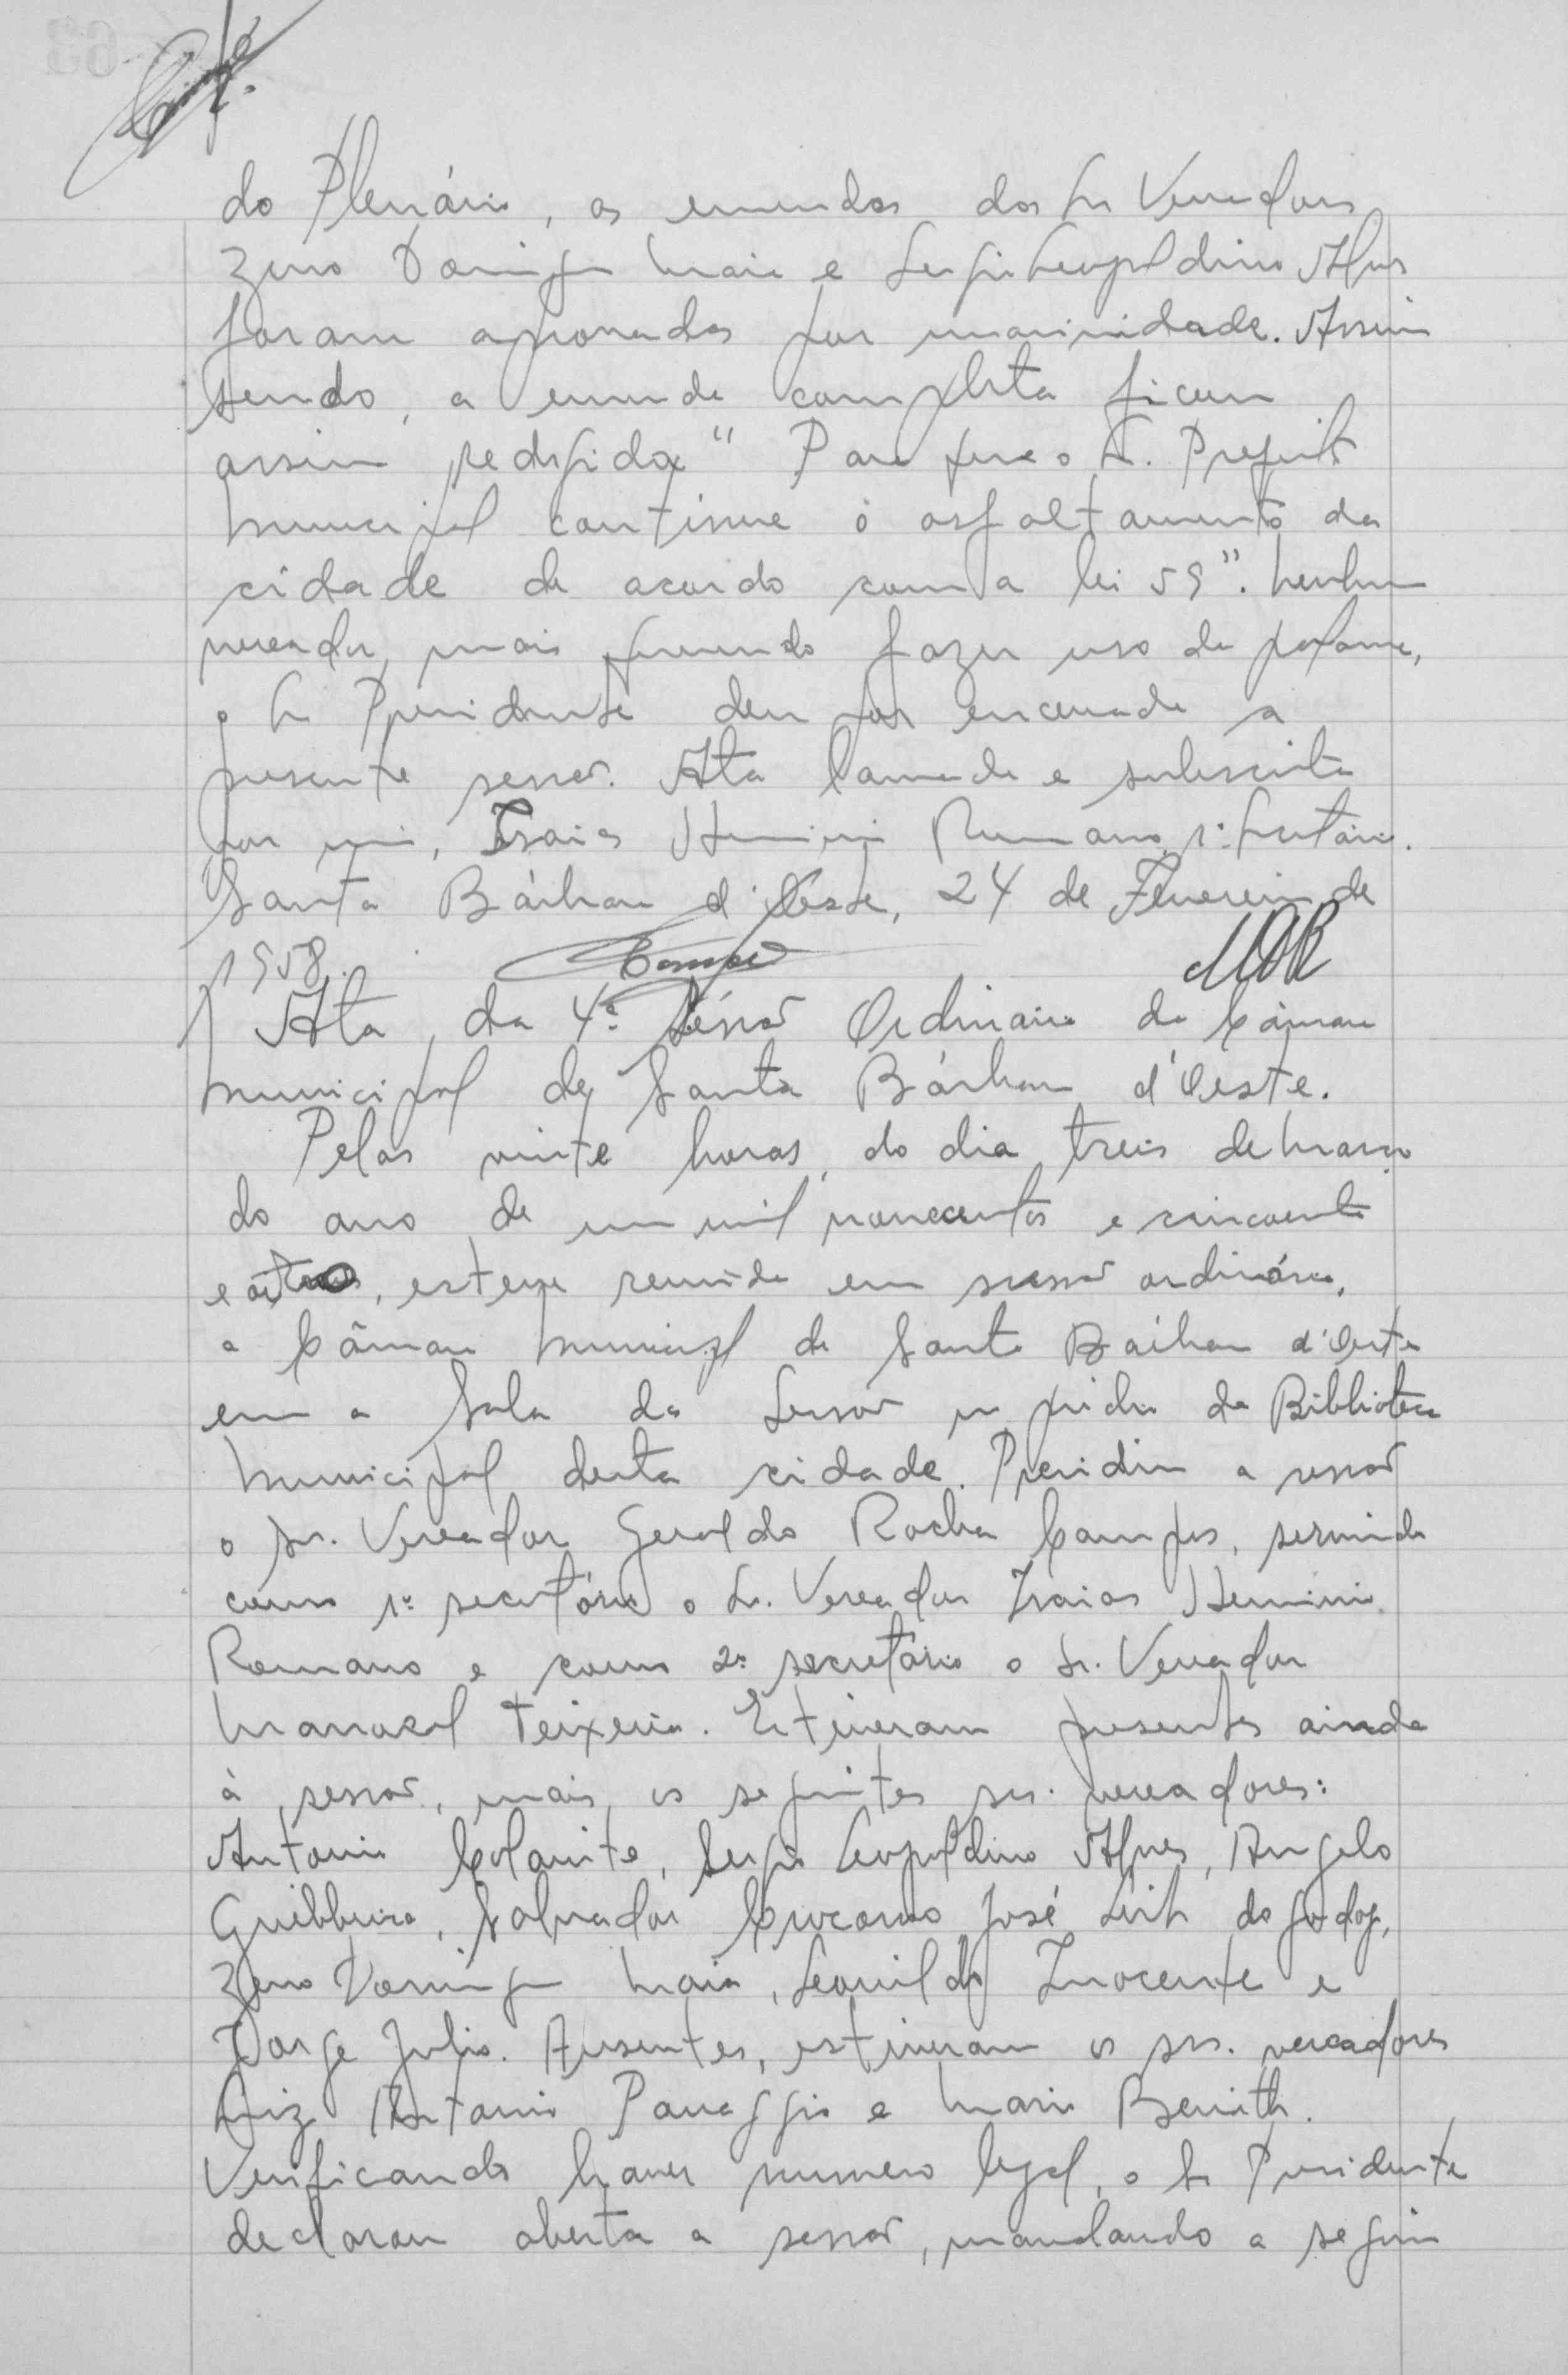 do Plenário, as emendas dos Sr Vereadores
Zeno Domingos Maia e Sergio Leopoldino Alves
foram aprovadas por unanimidade. Assim
sendo, a emenda completa ficou
assim redigida "Para que o Sr. Prefeito
Municipal continue o asfaltamento da
cidade de acordo com a lei 59". Nenhum
vereador, mais querendo fazer uso da palavra,
o Sr Presidente deu por encerrada a
presente sessão. Ata lavrada e subscrita
por mim, Isaias Herminio Romano, 1º Secretário.
Santa Bárbara d'Oeste, 24 de Fevereiro de
1958.
Ata da 4ª Sessão Ordinaria da Câmara
Municipal de Santa Bárbara d'Oeste.
Pelas vinte horas, do dia treis de Março
do ano de um mil novecentos e cincoenta
e oito, esteve reunida em sessão ordinária,
a Câmara Municipal de Santa Bárbara d'Oeste
em a Sala da Sessão no prédio da Biblioteca
Municipal desta cidade. Presidiu a sessão
o sr. Vereador Geraldo Rocha Campos, servindo
como 1º secretário o Sr. Vereador Isaias Herminio
Romano e como 2º secretário o Sr. Vereador
Manoel Teixeira. Estiveram presentes ainda
à sessão, mais os seguintes srs. vereadores:
Antonio Sergio Leopoldino Alves, Angelo
Salvador José Leite de Godoy,
Zeno Domingos Maia, Leonildo Inocente e
Jorge Julio. Ausentes, estiveram os srs. vereadores
Luiz Antonio Panaggio e Mario
Verificando haver numero legal, o Sr Presidente
declarou aberta a sessão, mandando a seguir